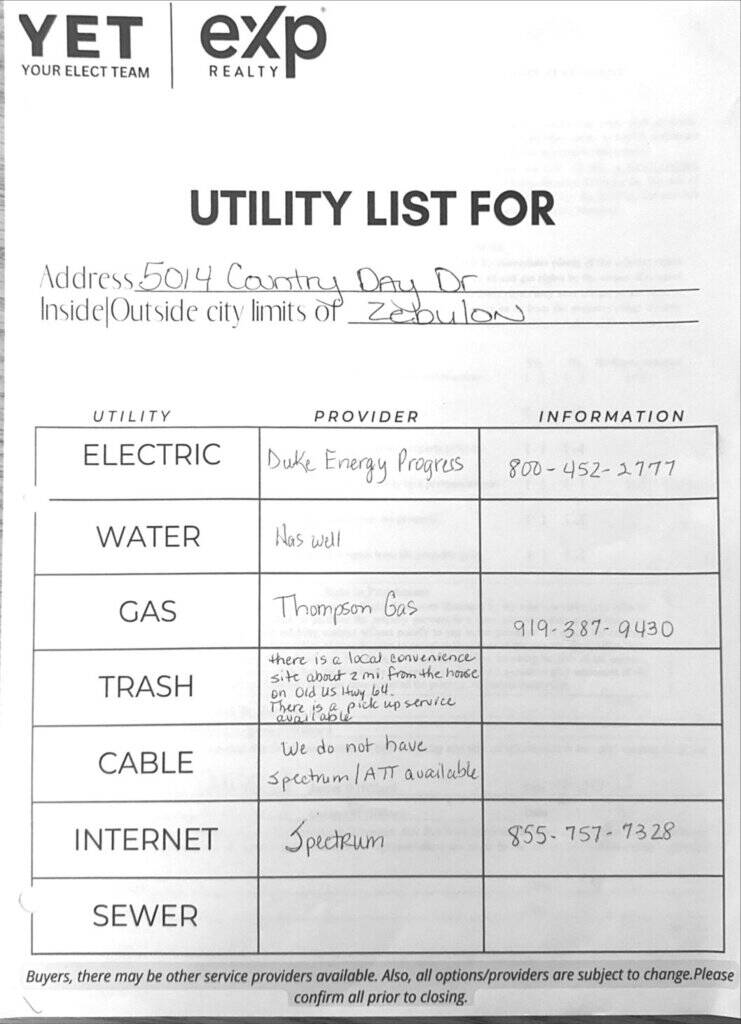 YET
YOUR ELECT TEAM
exp
REALTY
UTILITY LIST FOR
Address 5014 Country Day Dr
Inside|Outside city limits of Zebulon
UTILITY PROVIDER INFORMATION
ELECTRIC Duke Energy Progress 800-452-2777
WATER Has well
GAS Thompson Gas 919-387-9430
TRASH
there is a local convenience
site about 2 mi. from the house
on Old US Hwy 64.
There is a pick up service
available
CABLE
We do not have
Spectrum/ATT available
INTERNET Spectrum 855-757-7328
SEWER
Buyers, there may be other service providers available. Also, all options/providers are subject to change.Please
confirm all prior to closing.